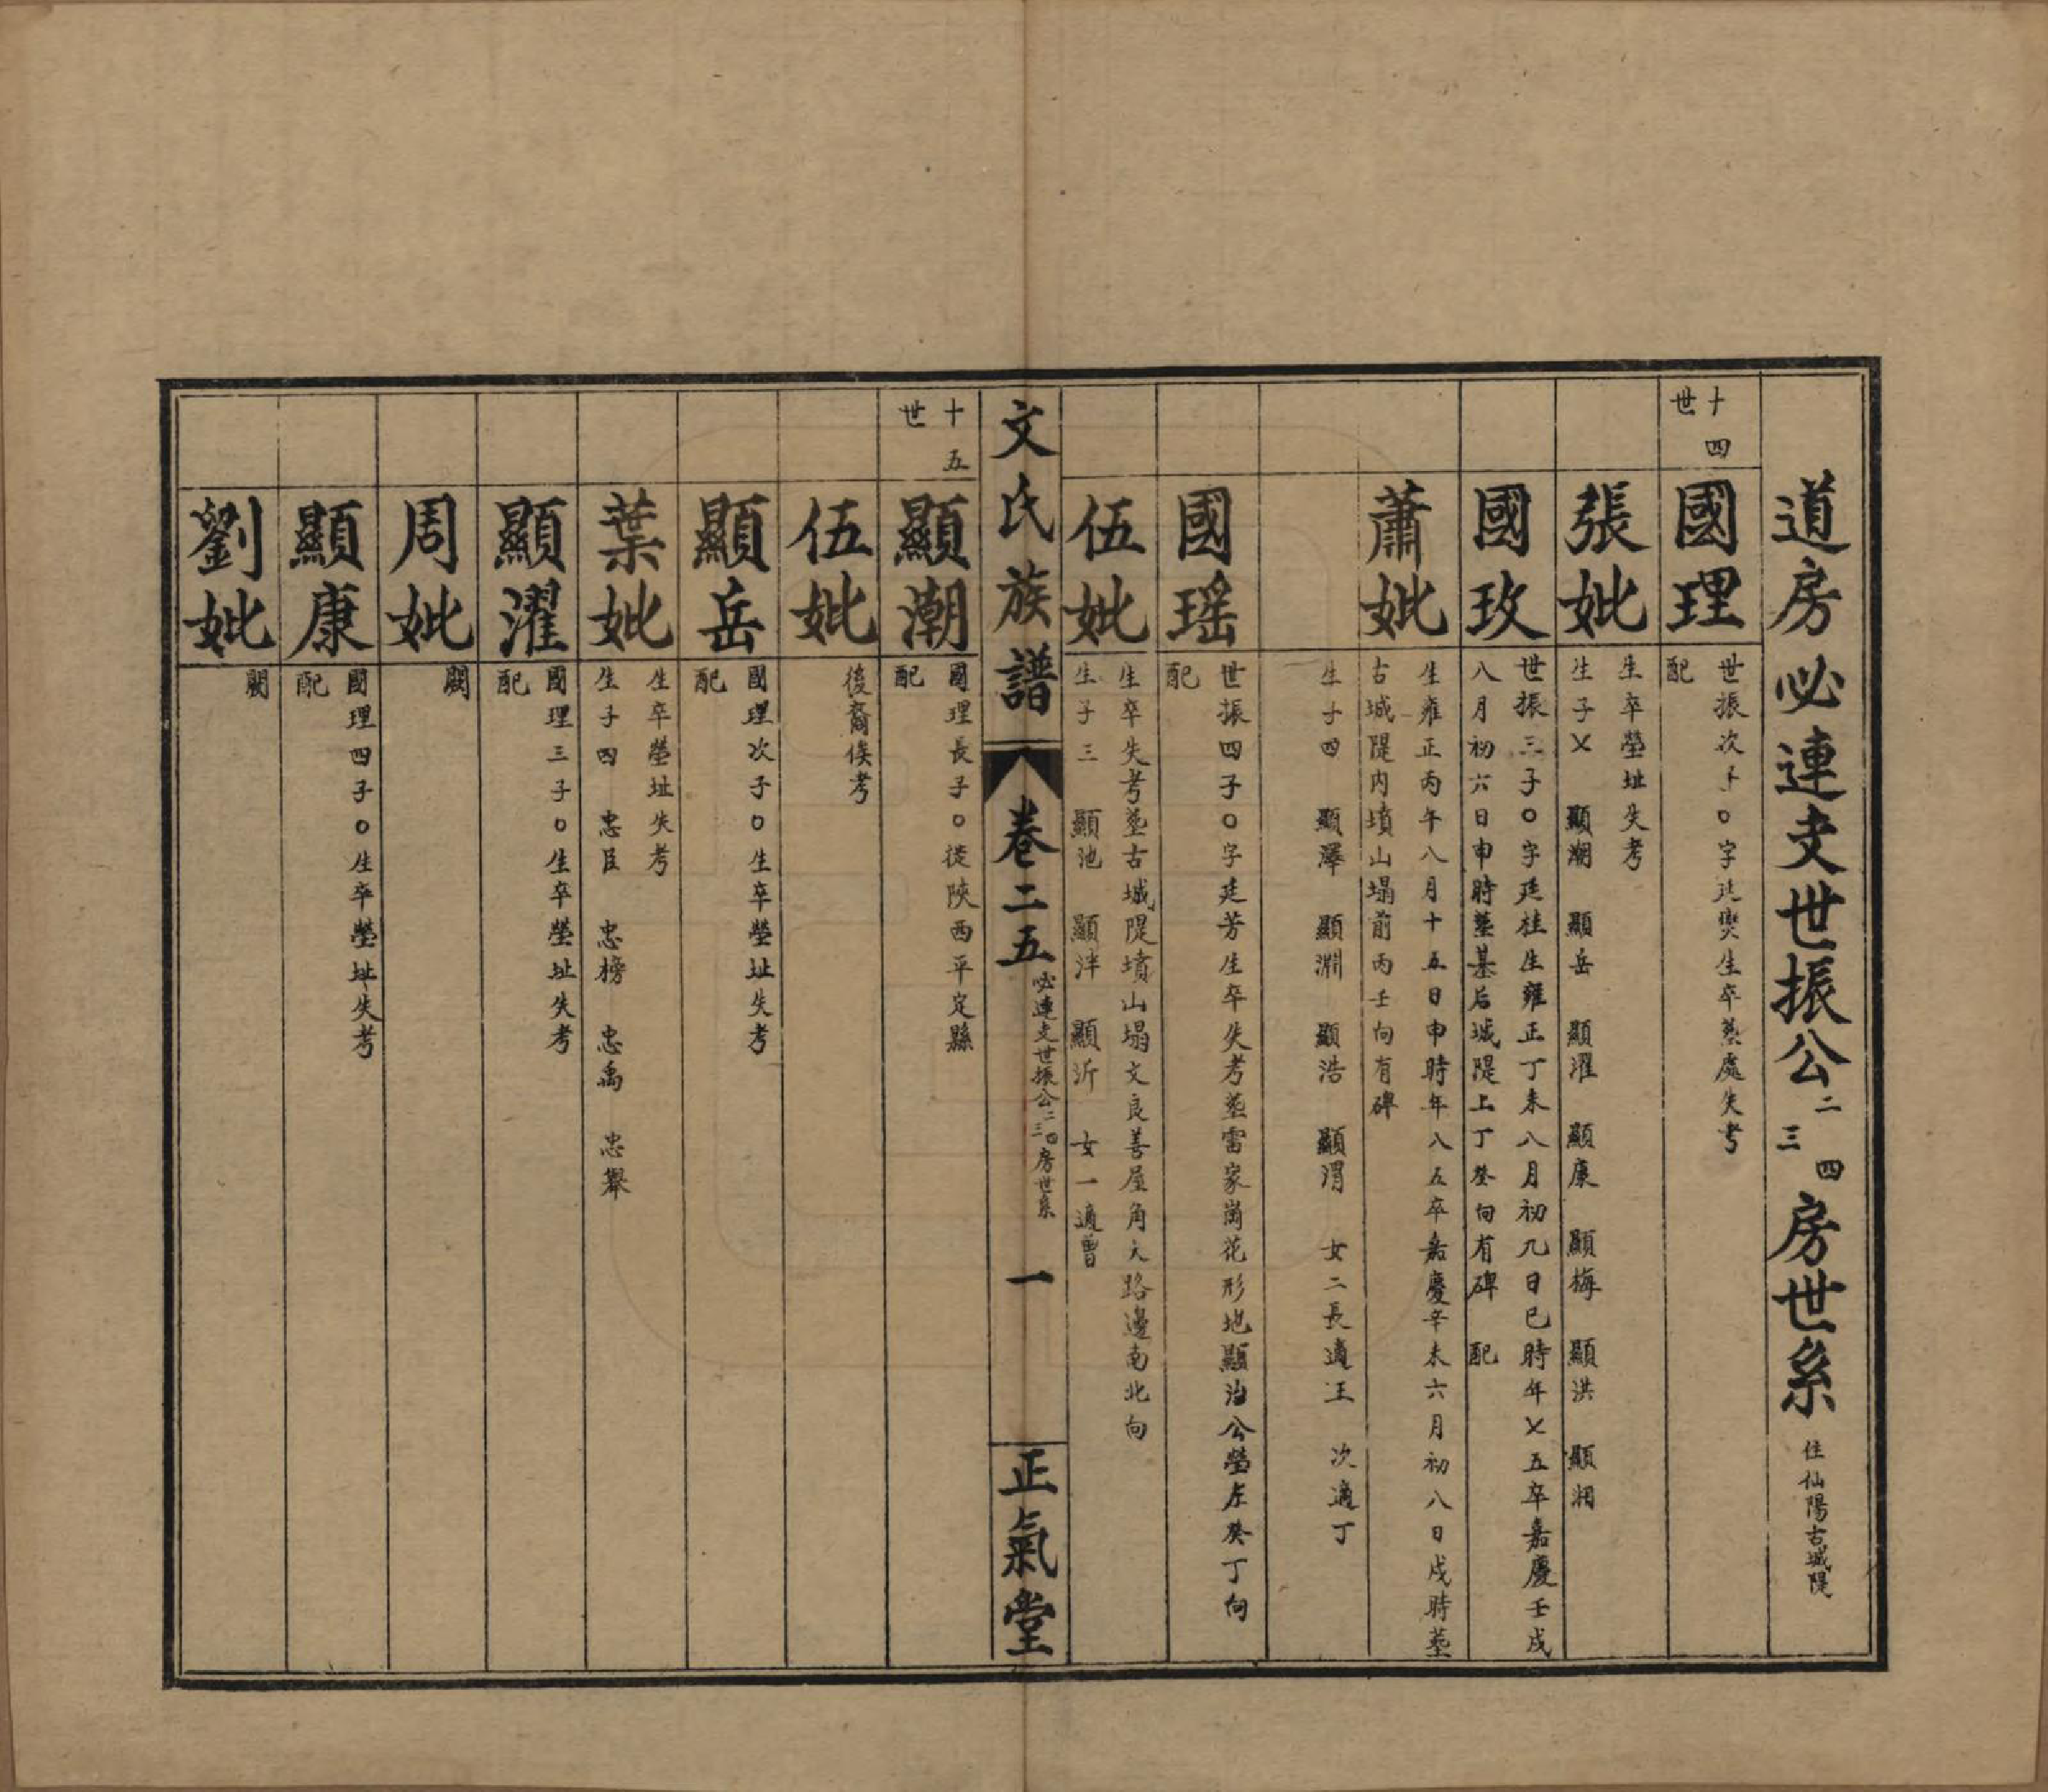 道房必連支世振公二三四房世系 住仙陽古城隄
十四世
國理
世振次子○字廷爕生卒塟處失考
配
張妣
生卒塋址失考
生子乂 顯潮 顯岳 顯濯 顯康 顯梅 顯洪 顯湘
國玫
世振三子○字廷桂生雍正丁未八月初九日巳時年乂五卒嘉慶壬戌
八月初六日申時塟基后城隄上丁癸向有碑 配
蕭妣
生雍正丙午八月十五日申時年八五卒嘉慶辛未六月初八日戌時塟
古城隄内墳山塌前丙壬向有碑
生子四 顯澤 顯淵 顯浩 顯渭 女二長適王 次適丁
國瑤
世振四子○字廷芳生卒失考塟雷家崗花形地顯治公塋左癸丁向
配
伍妣
生卒失考塟古城隄墳山塌文良善屋角大路邊南北向
生子三 顯池 顯泮 顯沂 女一適曹
文氏族譜
卷二五 必連支世振公二三四房世系
一
正氣堂
十五世
顯潮
國理長子○徙陝西平定縣
配
伍妣
後裔俟考
顯岳
國理次子○生卒塋址失考
配
葉妣
生卒塋址失考
生子四 忠臣 忠榜 忠禹 忠舉
顯濯
國理三子○生卒塋址失考
配
周妣
闕
顯康
國理四子○生卒塋址失考
配
劉妣
闕